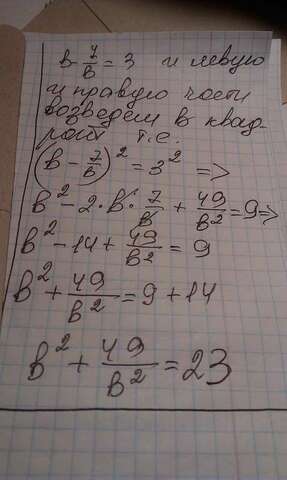 в - 7/в = 3 и левую
и правую части
возведем в квад-
рат т.е.
(в - 7/в)² = 3² =>
в² - 2·в·7/в + 49/в² = 9 =>
в² - 14 + 49/в² = 9
в² + 49/в² = 9 + 14
в² + 49/в² = 23